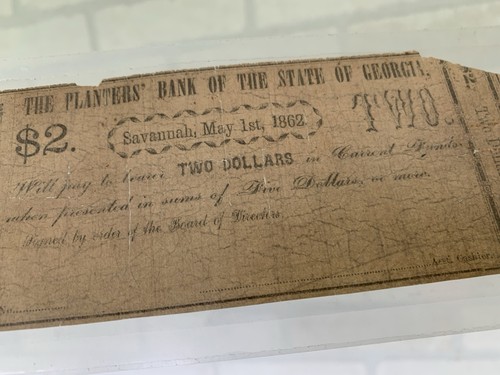 THE PLANTERS' BANK OF THE STATE OF GEORGIA,
$2.
Savannah, May 1st, 1862.
TWO.
Will pay to bearer TWO DOLLARS in Current Funds
when presented in sums of Five Dollars, or more.
Signed by order of the Board of Directors.
No.
Act'g Cashier.